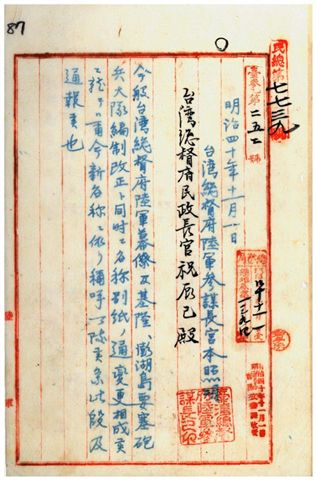 87
民總第七七三九號
臺參第二五 號
明治四十年十一月一日
台湾総督府陸軍参謀長宮本照明
台湾総督府民政長官祝辰巳殿
今般台湾総督府陸軍幕僚及基隆、澎湖島要塞砲
兵大隊編制改正ト同時ニ名称別紙ノ通変更相成候
ニ就テハ爾今新名称ニ依リ称呼可致候条此段及
通報候也
陸軍